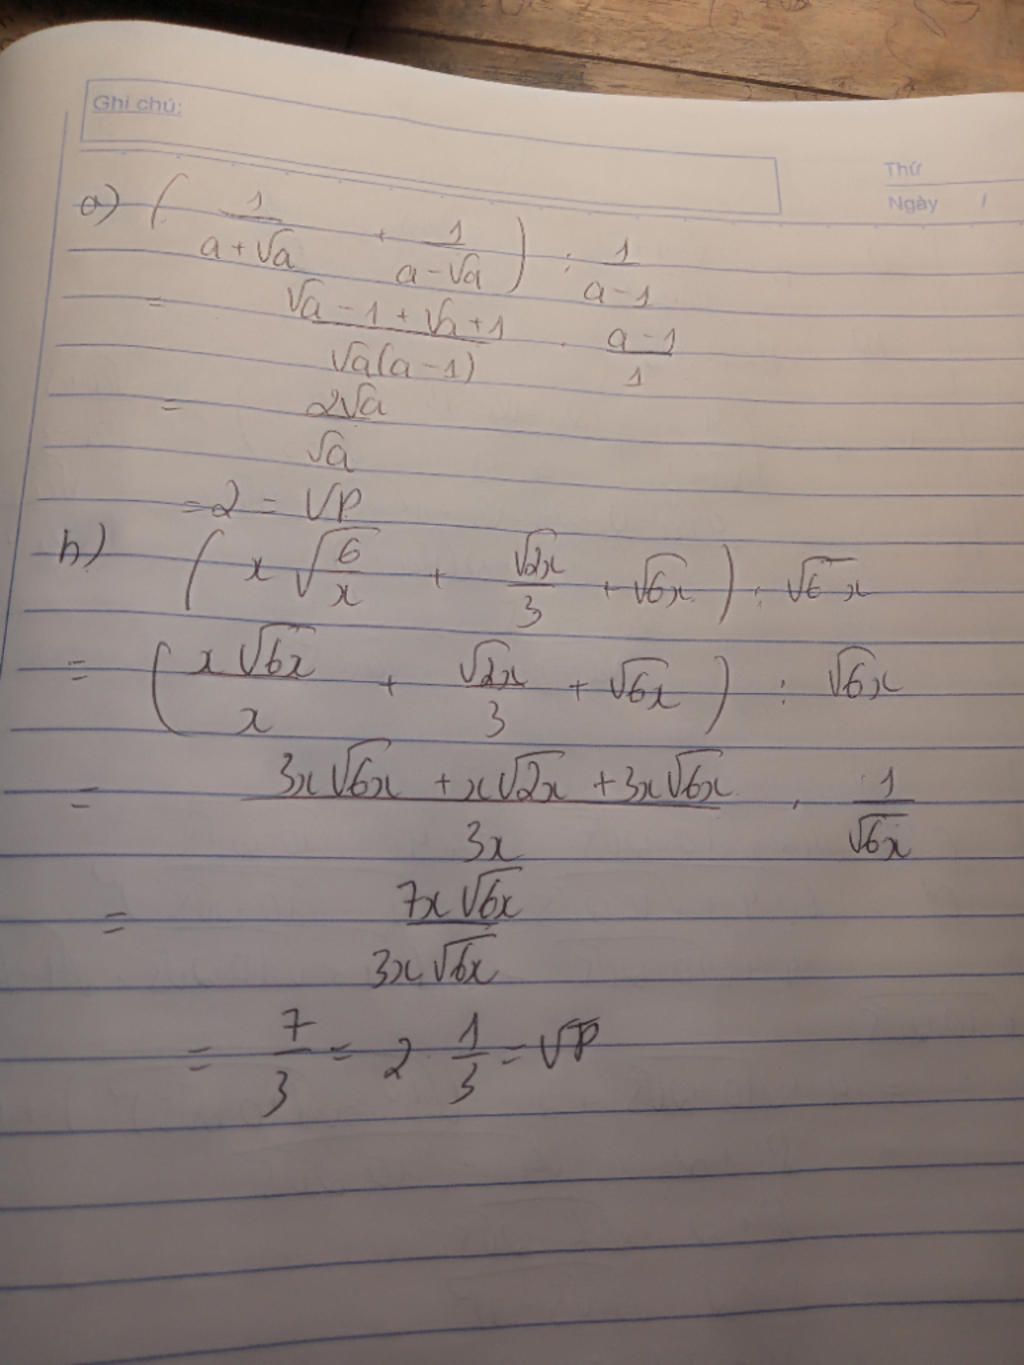 Ghi chú:
Thứ
Ngày /
a) ( 1/(a+√a) + 1/(a-√a) ) : 1/(a-1)
= (√a - 1 + √a + 1)/(√a(a-1)) . (a-1)/1
= 2√a/√a
= 2 = VP
b) ( x√(6/x) + √2x/3 + √6x ) : √6x
= ( x√6x/x + √2x/3 + √6x ) : √6x
= (3x√6x + x√2x + 3x√6x)/3x . 1/√6x
= 7x√6x/3x√6x
= 7/3 = 2 1/3 = VP